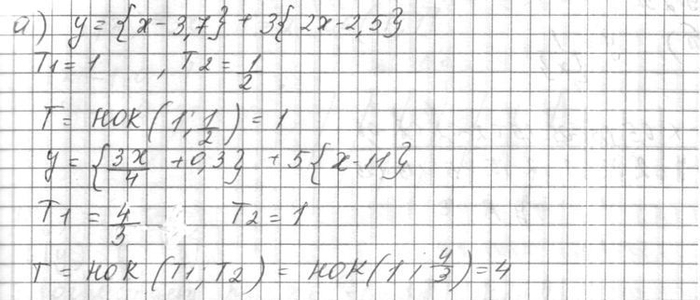 а) y = {x - 3,7} + 3{2x - 2,5}
T1 = 1 , T2 = 1/2
T = НОК(1; 1/2) = 1
y = {3x/4 + 0,3} + 5{x - 11}
T1 = 4/3 T2 = 1
T = НОК(T1; T2) = НОК(1; 4/3) = 4